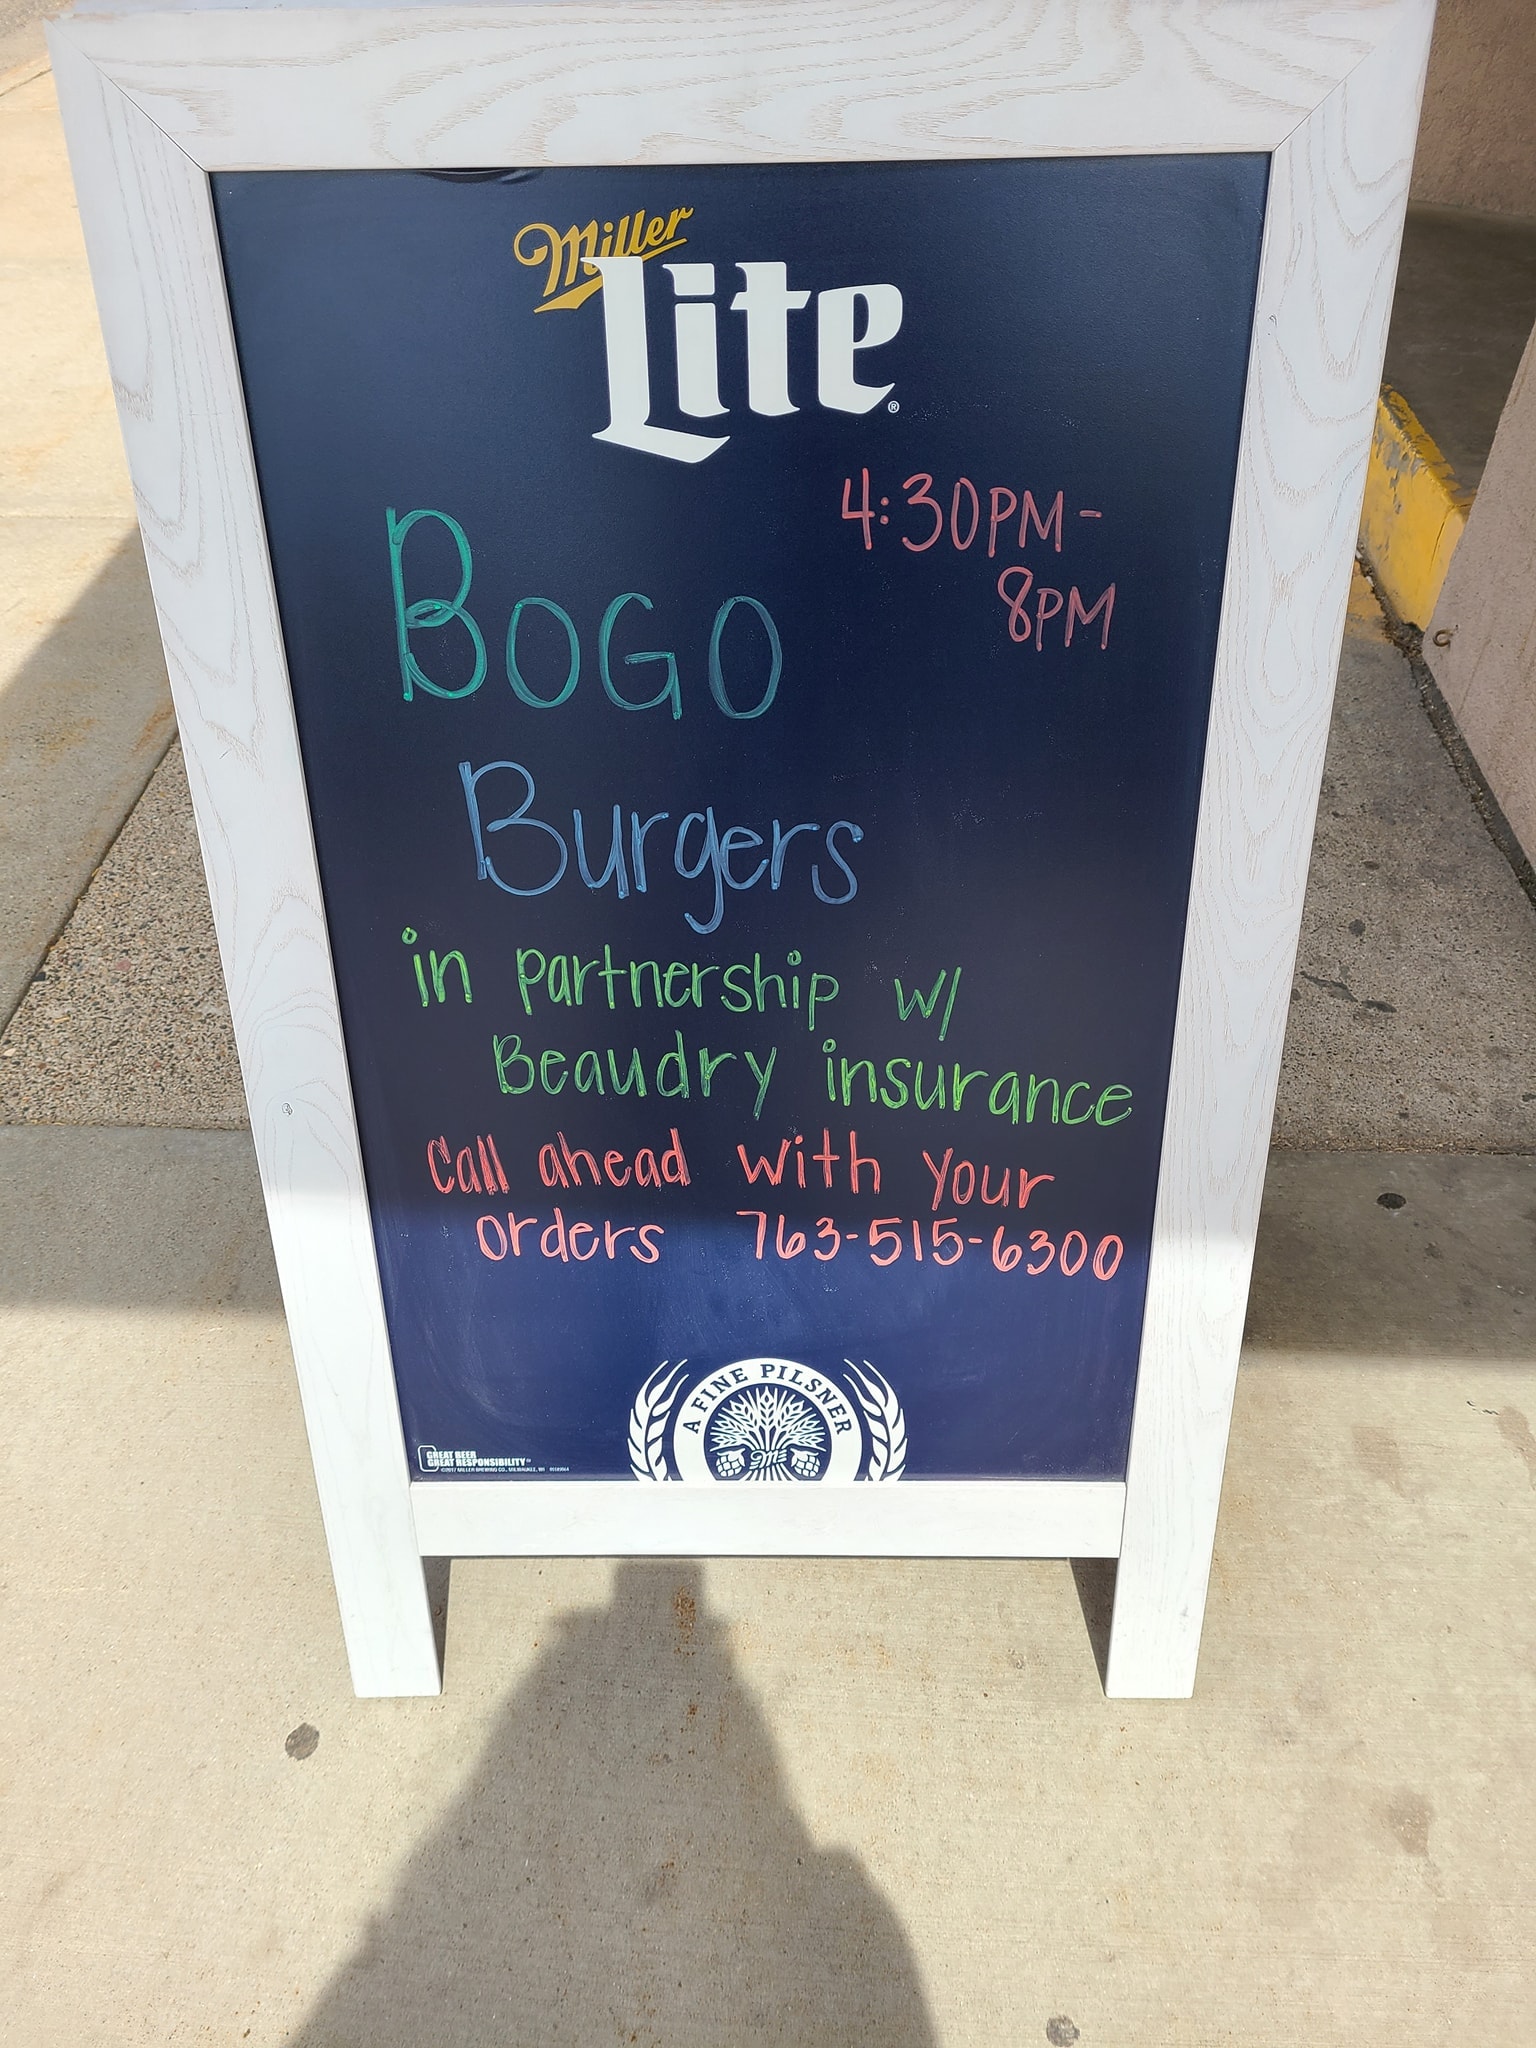 Miller
Lite®
4:30PM-
8PM
BOGO
Burgers
in partnership w/
Beaudry insurance
Call ahead with your
orders 763-515-6300
A FINE PILSNER
GREAT BEER
GREAT RESPONSIBILITY
©2017 MILLER BREWING CO., MILWAUKEE, WI